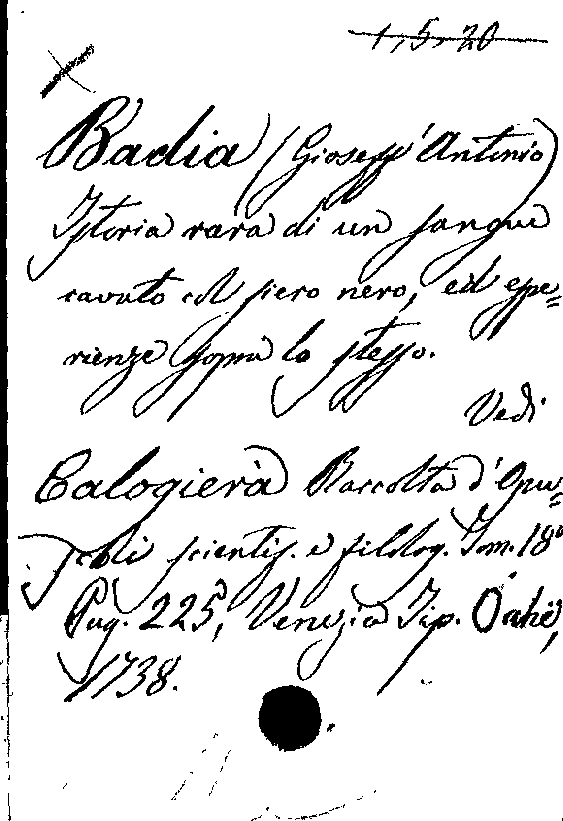 1,5,20
Badia (Gioseff' Antonio)
Istoria rara di un sangue
cavato col siero nero, ed espe=
rienze sopra lo stesso.
Vedi
Calogierà Raccolta d'Opu=
scoli scientif. e filolog. Tom. 18°
Pag. 225, Venezia Tip.
1738.